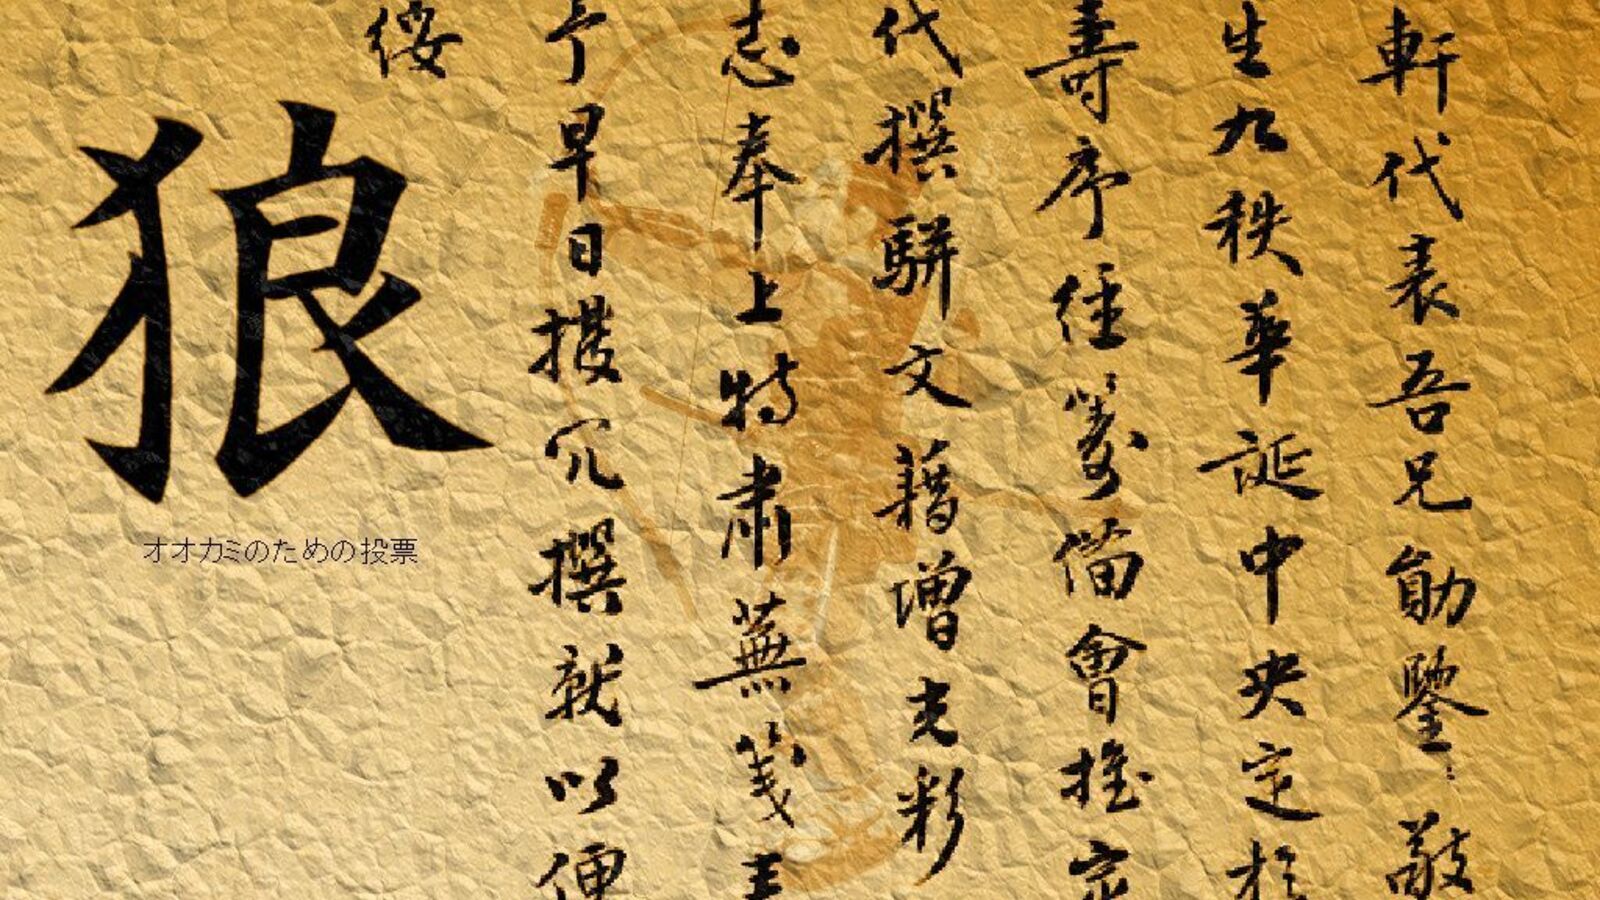 軒代表吾兄勛鑒：敬
生九秩華誕中央定於
壽序經籌備會推定
代撰駢文藉增光彩
志奉上特肅蕪箋
予早日撥冗撰就以便
綏
狼
オオカミのための投票